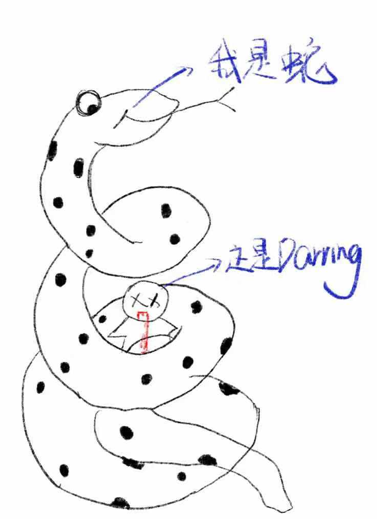 我是蛇
这是Darring